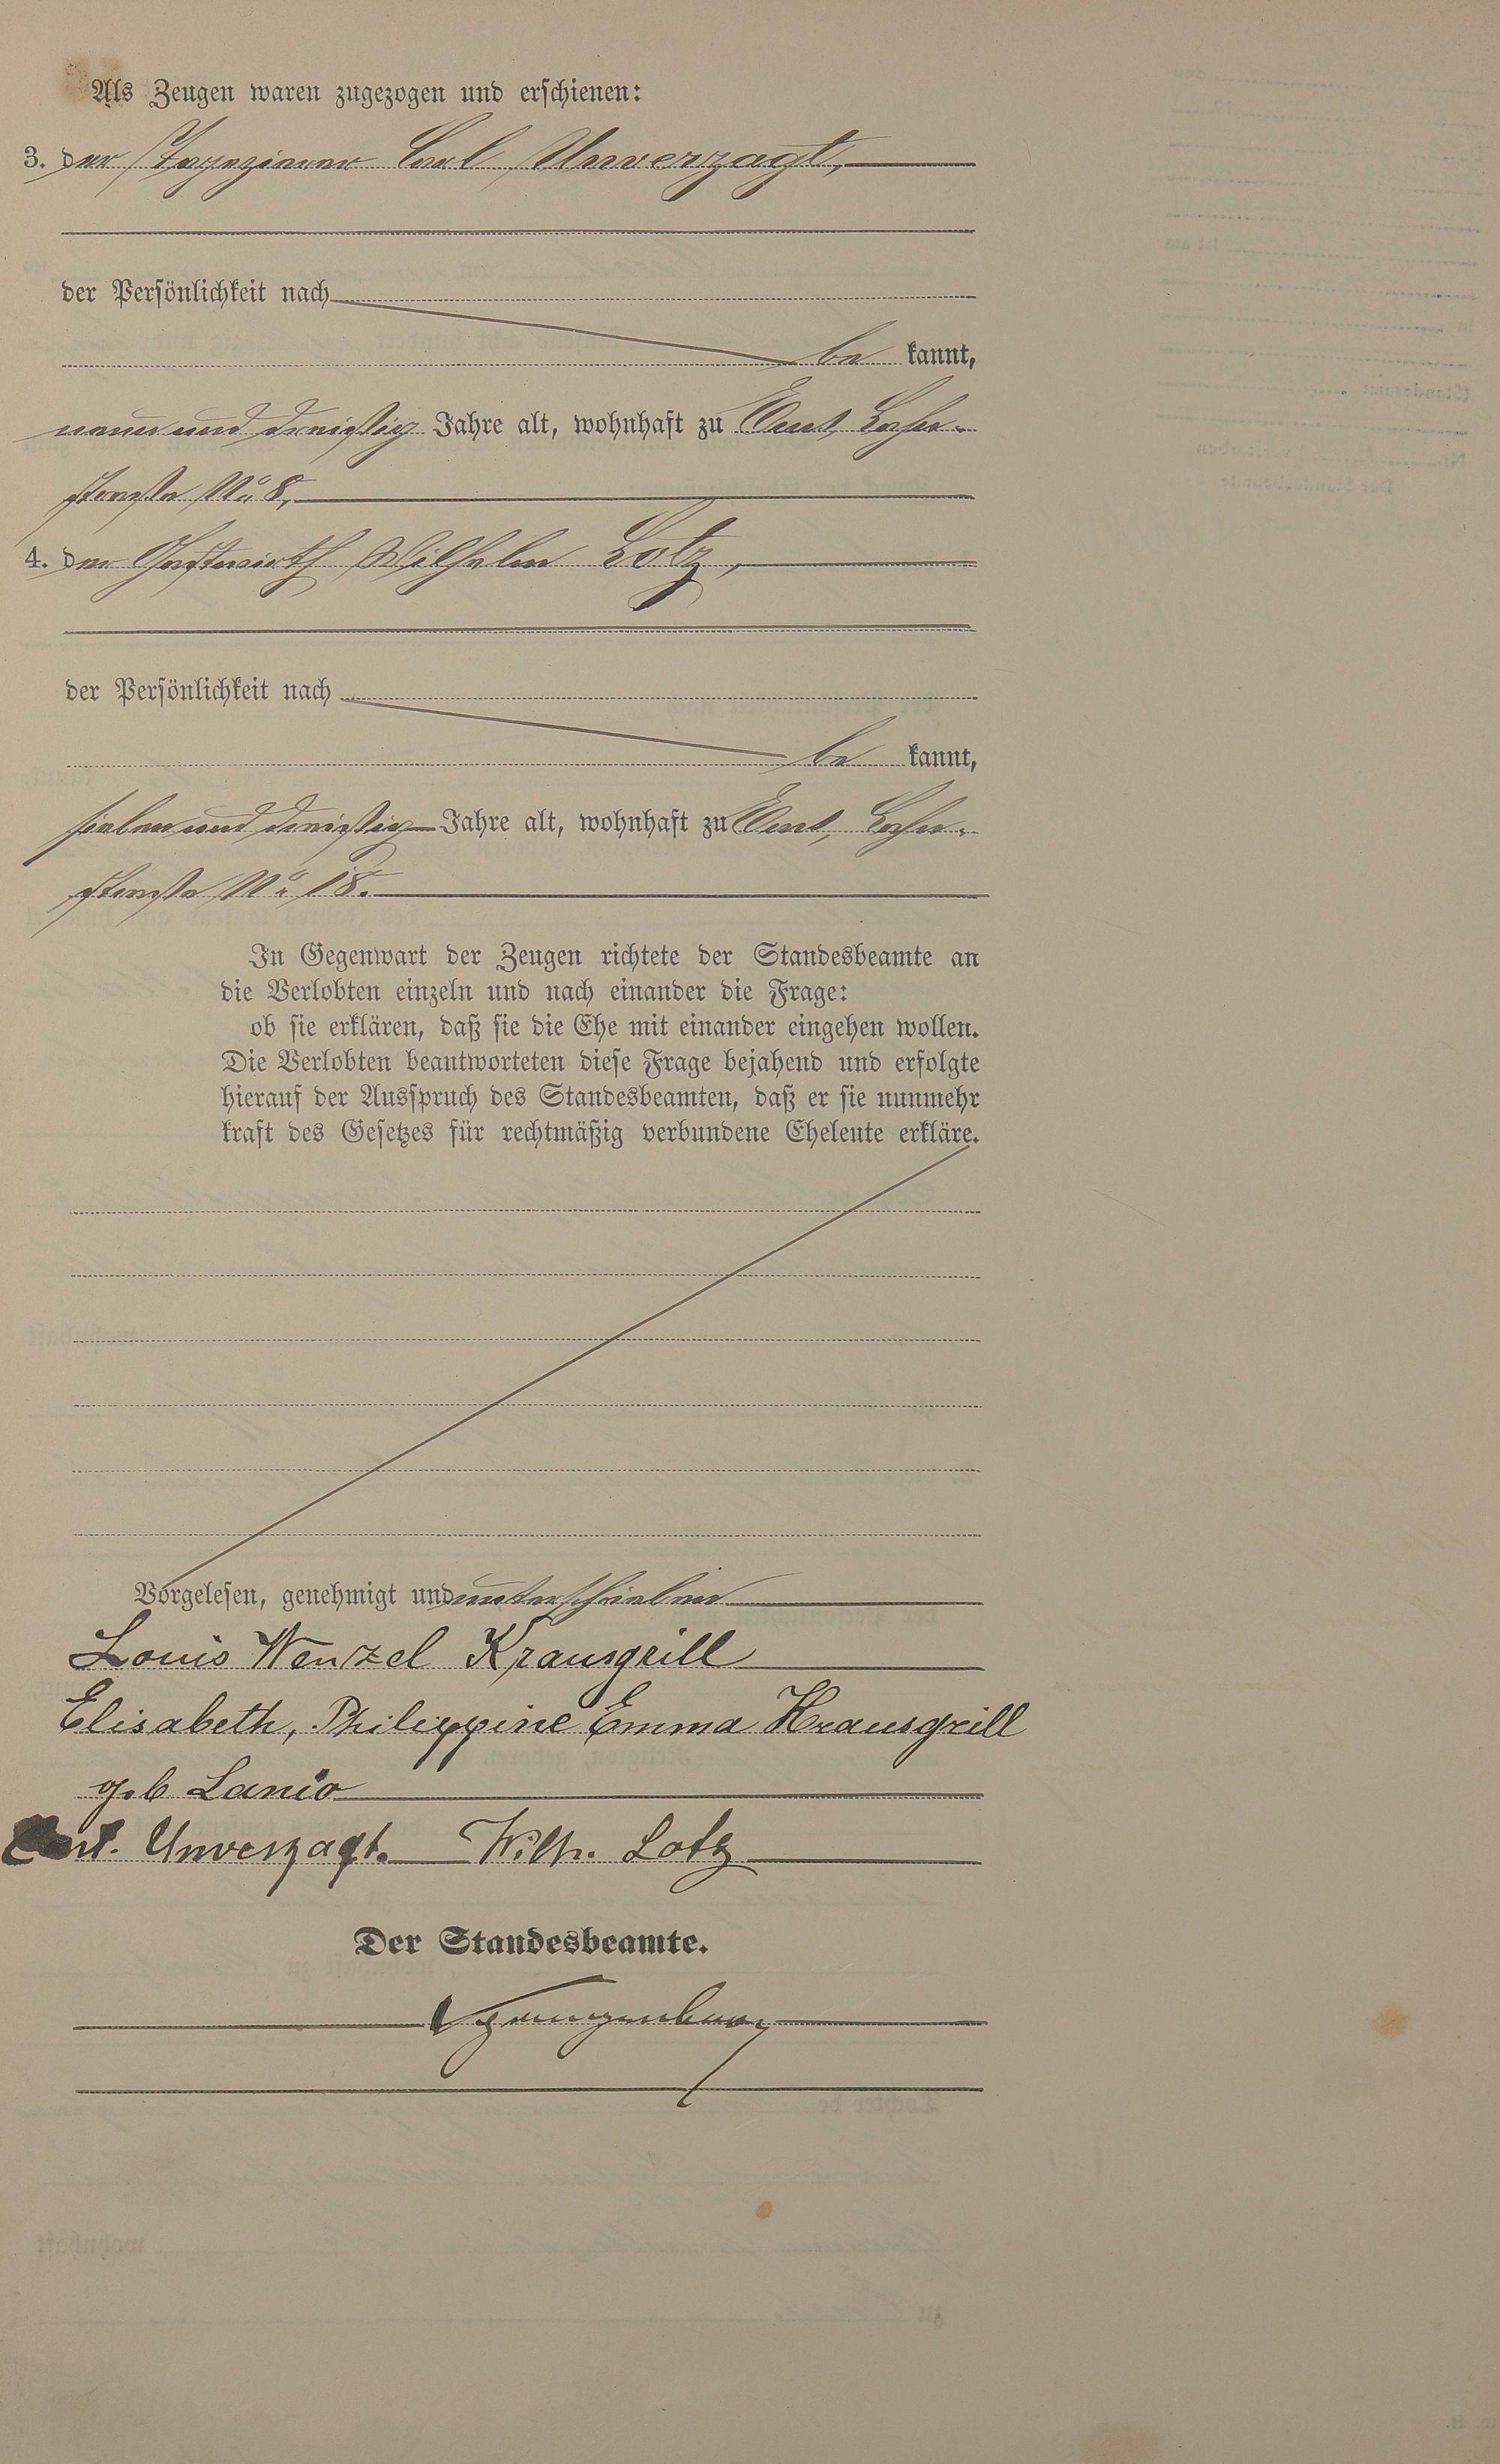 Als Zeugen waren zugezogen und erschienen:
3. der Tapezierer Carl Unverzagt,
der Persönlichkeit nach
be kannt,
neun und dreißig Jahre alt, wohnhaft zu Ems, Lahn-
straße No. 8,
4. der Gastwirth Wilhelm Lotz,
der Persönlichkeit nach
be kannt,
sieben und dreißig Jahre alt, wohnhaft zu Ems, Lahn-
straße No. 18.
In Gegenwart der Zeugen richtete der Standesbeamte an
die Verlobten einzeln und nach einander die Frage:
ob sie erklären, daß sie die Ehe mit einander eingehen wollen.
Die Verlobten beantworteten diese Frage bejahend und erfolgte
hierauf der Ausspruch des Standesbeamten, daß er sie nunmehr
kraft des Gesetzes für rechtmäßig verbundene Eheleute erkläre.
Vorgelesen, genehmigt und unterschrieben
Louis Wenzel Krausgrill
Elisabeth, Philippine Emma Krausgrill
geb Lanio
Unverzagt. Wilh. Lotz
Der Standesbeamte.